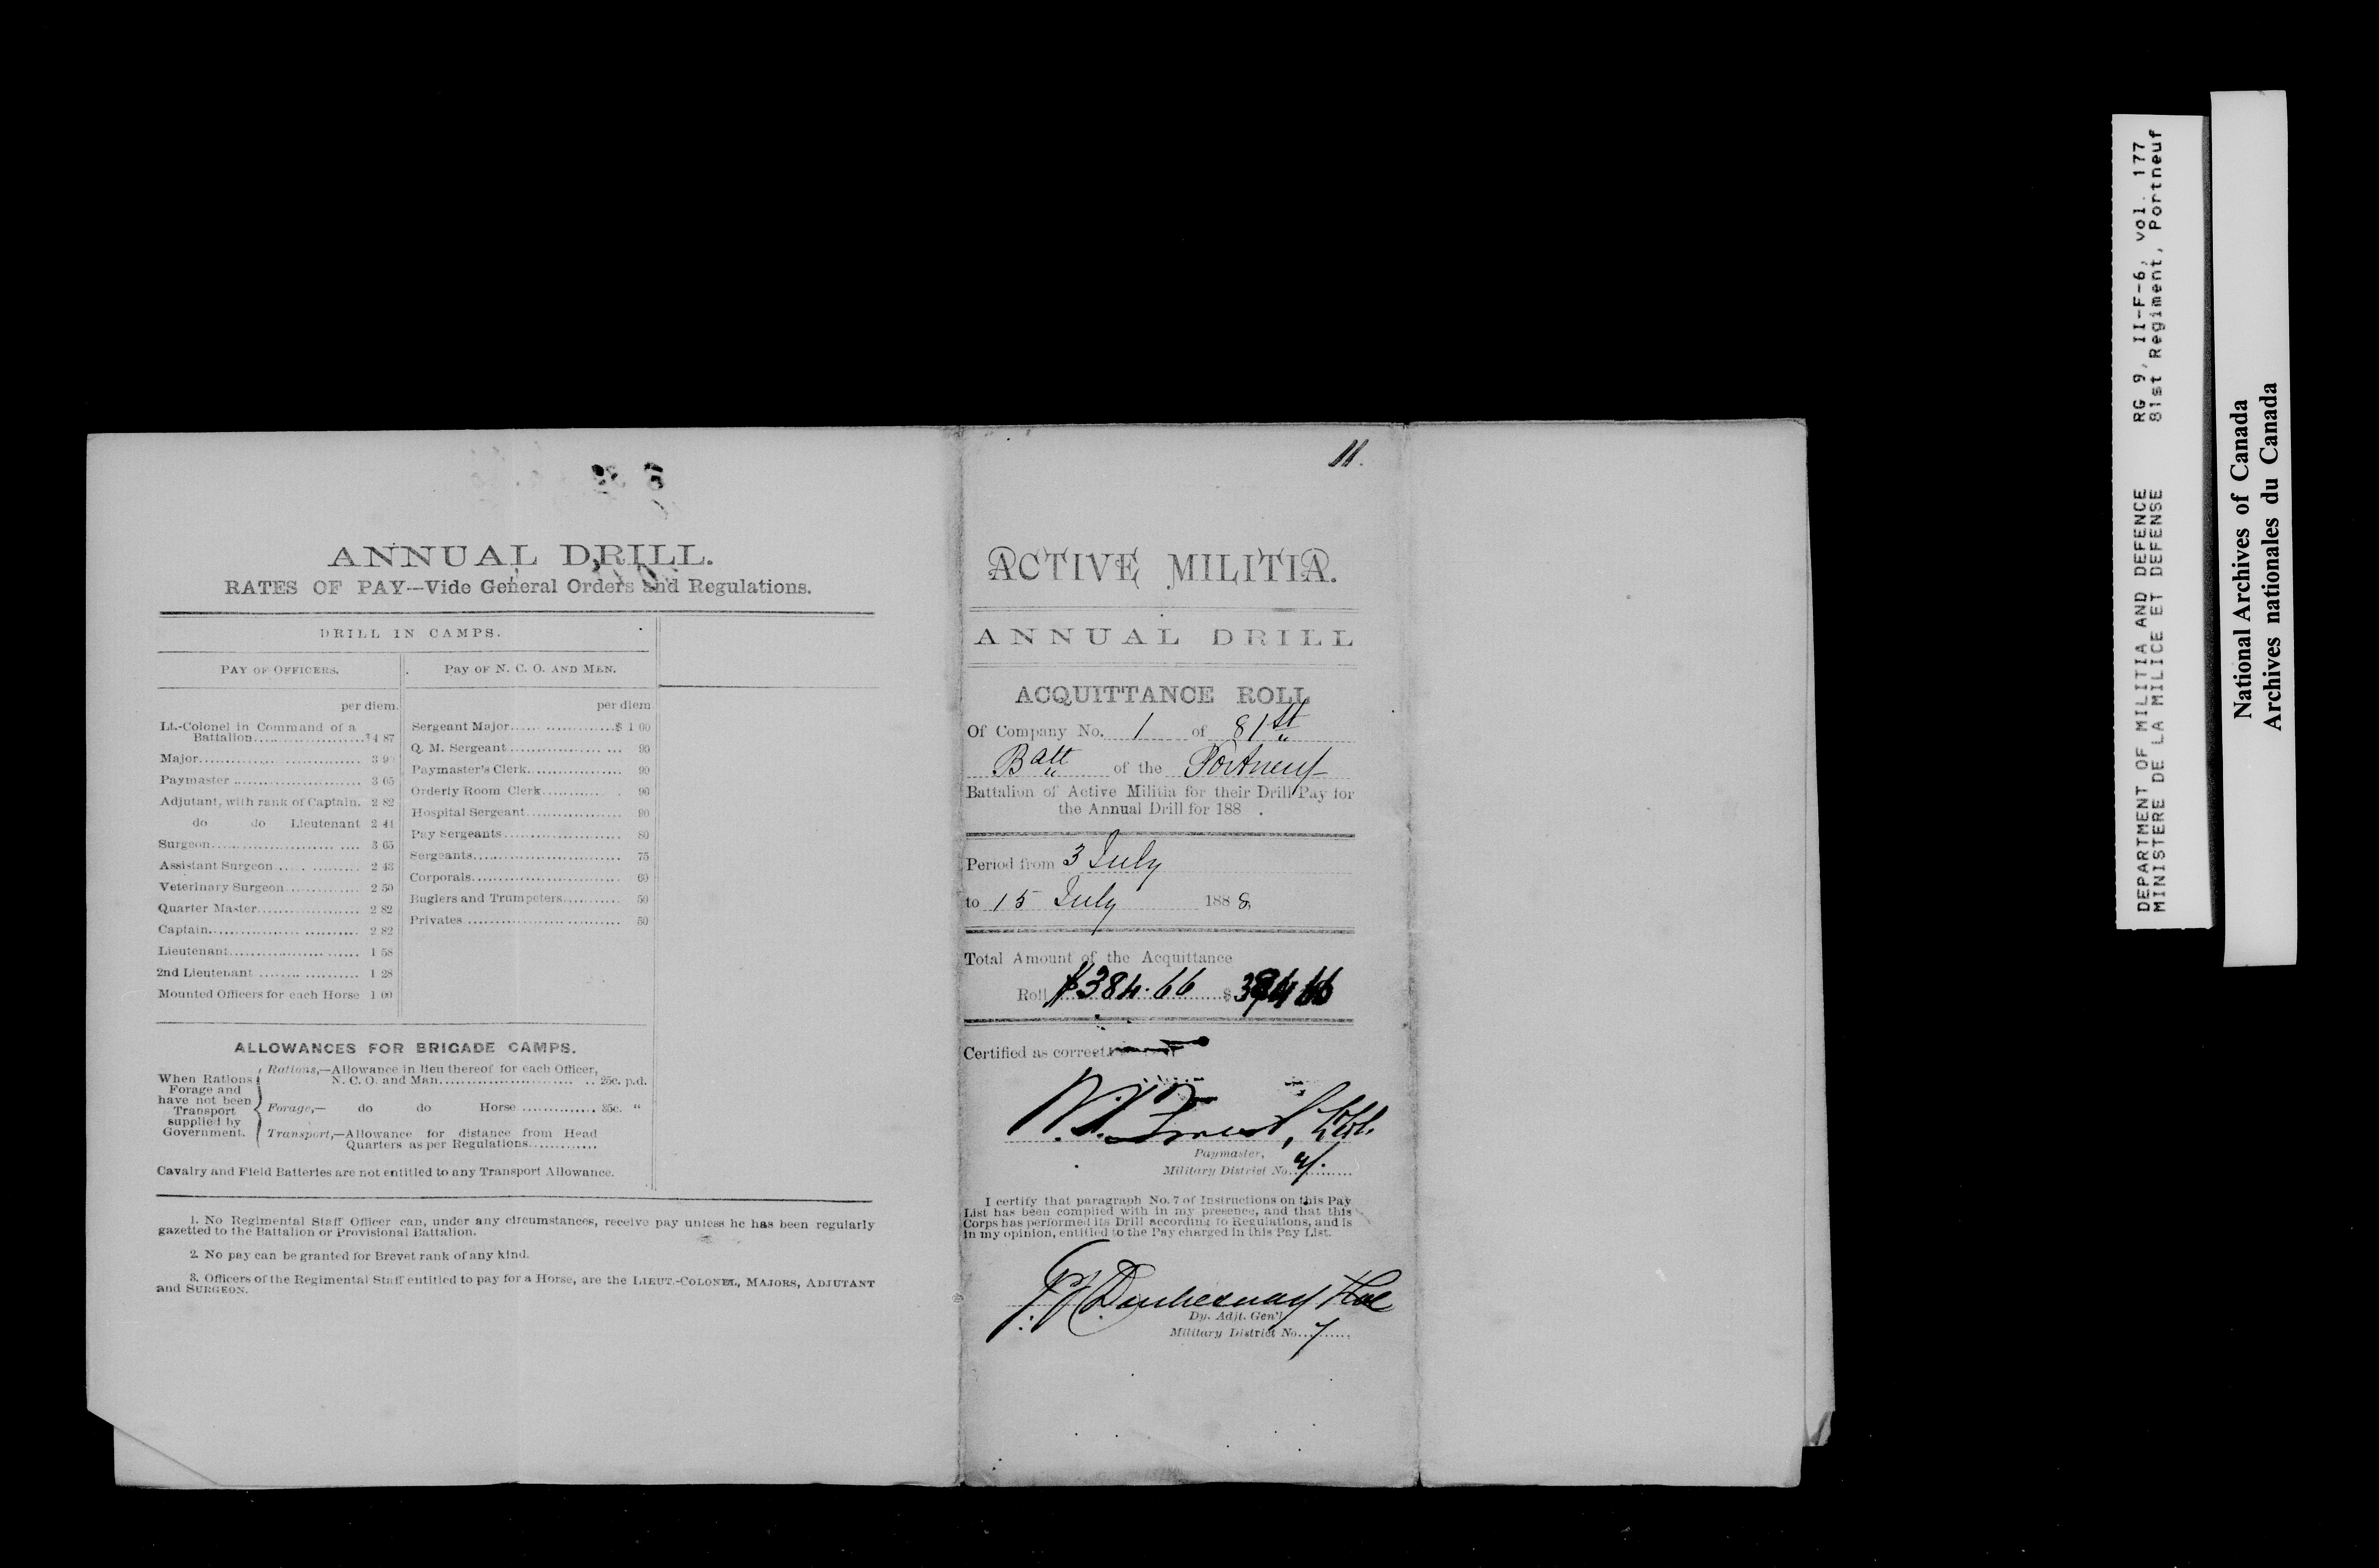 ANNUAL DRILL.
RATES OF PAY—Vide General Orders and Regulations.
DRILL IN CAMPS.
PAY OF OFFICERS.
per diem.
Lt.-Colonel in Command of a
Battalion....................$4 87
Major............................. 3 9
Paymaster ........................ 3 05
Adjutant, with rank of Captain. 2 82
do do Lieutenant 2 44
Surgeon........................... 3 65
Assistant Surgeon................. 2 43
Veterinary Surgeon............. 2 50
Quarter Master................... 2 82
Captain........................... 2 82
Lieutenant........................ 1 58
2nd Lieutenant ................... 1 28
Mounted Officers for each Horse 1 00
PAY OF N. C. O. AND MEN.
per diem
Sergeant Major...................$ 1 00
Q. M. Sergeant................... 90
Paymaster's Clerk................ 90
Orderly Room Clerk............ 90
Hospital Sergeant................ 90
Pay Sergeants.................... 80
Sergeants......................... 75
Corporals......................... 60
Buglers and Trumpeters.......... 50
Privates.......................... 50
ALLOWANCES FOR BRIGADE CAMPS.
When Rations
Forage and
have not been
Transport
supplied by
Government.
Rations,—Allowance in lieu thereof for each Officer,
N. C. O. and Man........................... 25c. p.d.
Forage,— do do Horse .............. 35c. "
Transport,—Allowance for distance from Head
Quarters as per Regulations............
Cavalry and Field Batteries are not entitled to any Transport Allowance.
1. No Regimental Staff Officer can, under any circumstances, receive pay unless he has been regularly
gazetted to the Battalion or Provisional Battalion.
2. No pay can be granted for Brevet rank of any kind.
3. Officers of the Regimental Staff entitled to pay for a Horse, are the LIEUT.-COLONEL, MAJORS, ADJUTANT
and SURGEON.
11.
ACTIVE MILITIA.
ANNUAL DRILL
ACQUITTANCE ROLL
Of Company No. 1 of 81st
Batt of the Portneuf
Battalion of Active Militia for their Drill Pay for
the Annual Drill for 188 .
Period from 3 July
to 15 July 1888
Total Amount of the Acquittance
Roll $384.66 $384 66
Certified as correct.
Paymaster,
Military District No.
I certify that paragraph No. 7 of Instructions on this Pay
List has been complied with in my presence, and that this
Corps has performed its Drill according to Regulations, and is
in my opinion, entitled to the Pay charged in this Pay List.
Dy. Adjt. Gen'l
Military District No. 7
DEPARTMENT OF MILITIA AND DEFENCE RG 9, II-F-6, vol. 177
MINISTERE DE LA MILICE ET DEFENSE 81st Regiment, Portneuf
National Archives of Canada
Archives nationales du Canada